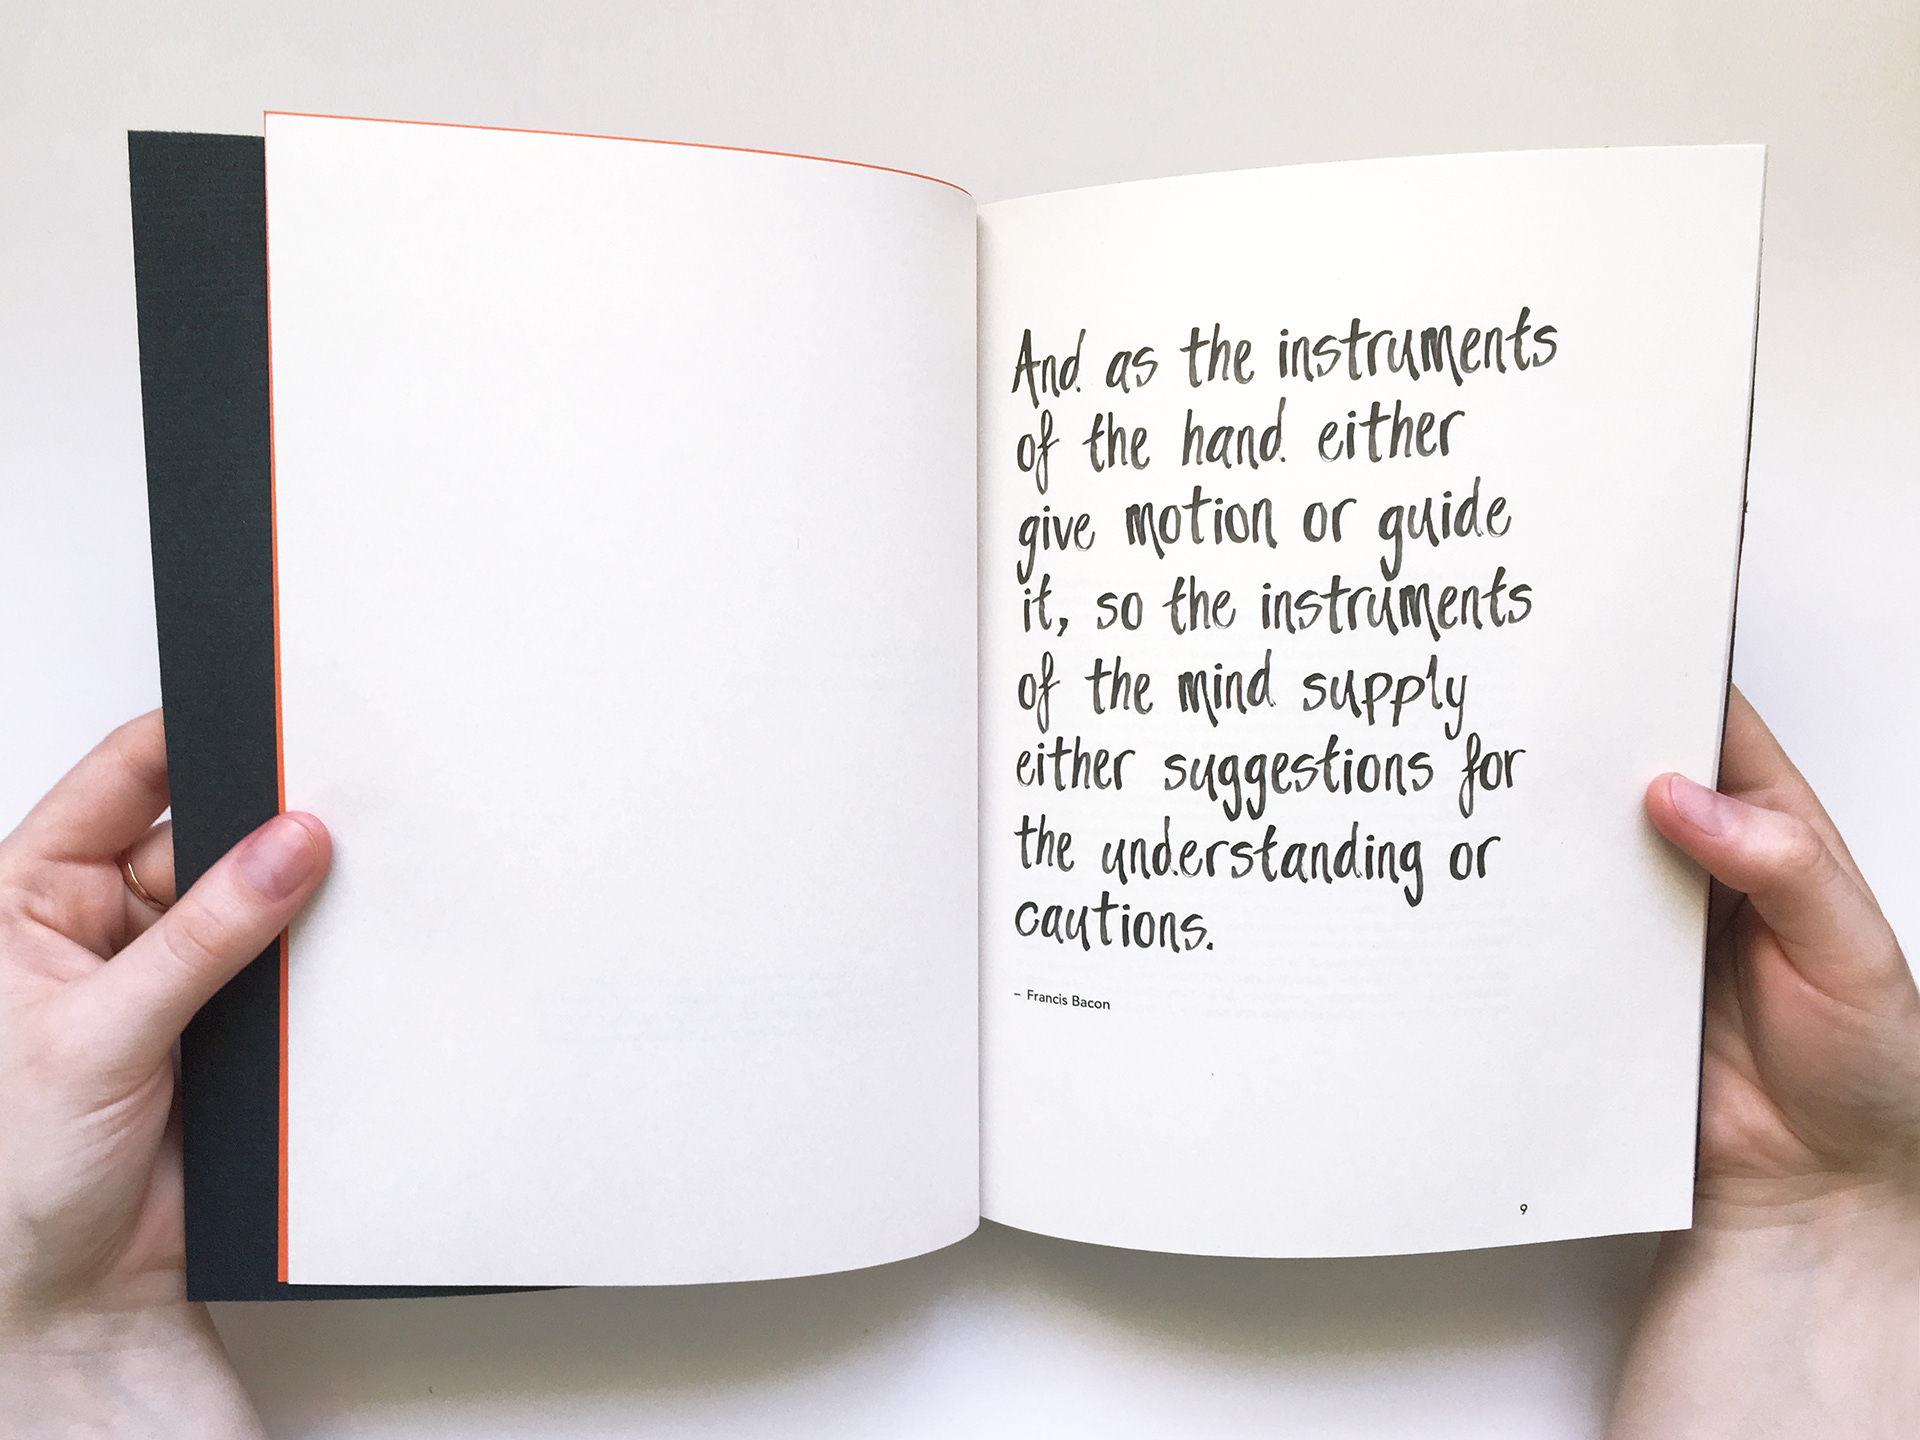 And as the instruments
of the hand either
give motion or guide
it, so the instruments
of the mind supply
either suggestions for
the understanding or
cautions.
– Francis Bacon
9